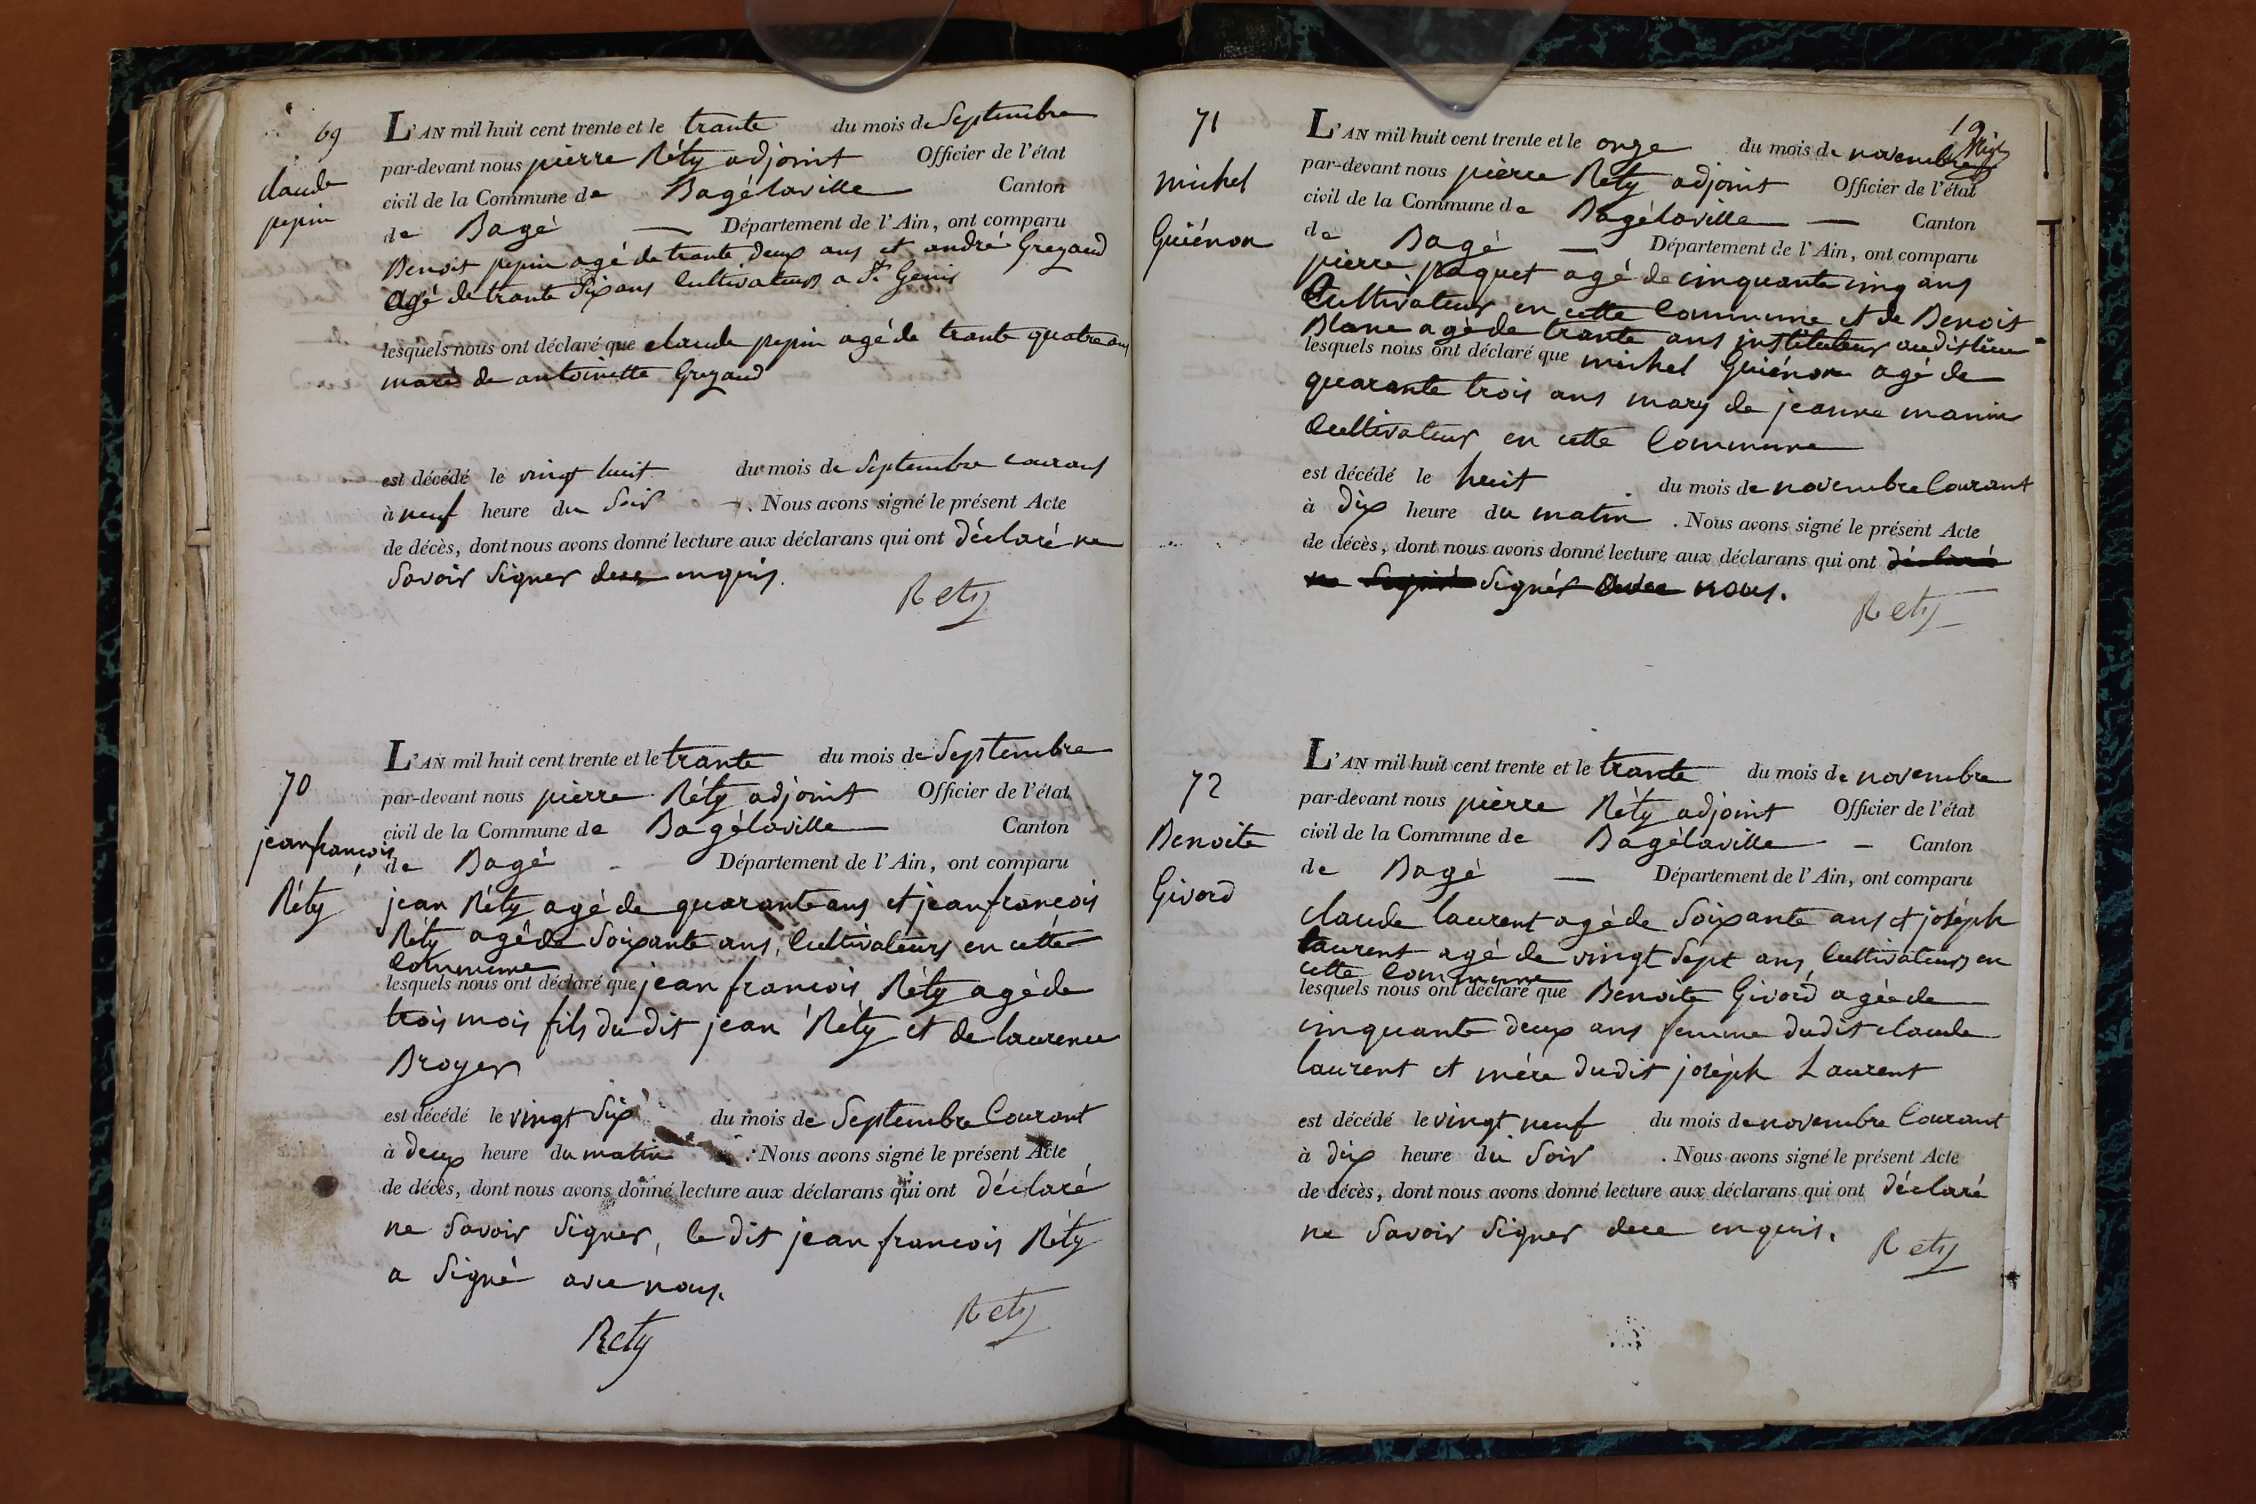 69
claude
pepin
L'AN mil huit cent trente et le trante du mois de Septembre
par-devant nous pierre Réty adjoint Officier de l'état
civil de la Commune de Bagélaville Canton
de Bagé — Département de l'Ain, ont comparu
Benoit pepin agé de trante deux ans et andré Greyaud
agé de trante Six ans Cultivateurs a St. Genis
lesquels nous ont déclaré que claude pepin agé de trante quatre ans
marié de antoinette Greyaud
est décédé le vingt huit du mois de Septembre courant
à neuf heure du Soir . Nous avons signé le présent Acte
de décès, dont nous avons donné lecture aux déclarans qui ont déclaré ne
Savoir Signer dece enquis.
Rety
70
jean françois
Réty
L'AN mil huit cent trente et le trante du mois de Septembre
par-devant nous pierre Réty adjoint Officier de l'état
civil de la Commune de Bagélaville Canton
de Bagé - Département de l'Ain, ont comparu
jean Réty agé de quarante ans et jean francois
Réty agé de Soixante ans, Cultivateurs en cette
Commune
lesquels nous ont déclaré que jean francois Réty agé de
trois mois fils du dit jean Réty et de laurence
Broyer
est décédé le vingt Six du mois de Septembre Courant
à deux heure du matin . Nous avons signé le présent Acte
de décès, dont nous avons donné lecture aux déclarans qui ont déclaré
ne Savoir Signer, le dit jean francois Réty
a Signé avec nous.
Rety
Rety
19
71
michel
Guiénon
L'AN mil huit cent trente et le onze du mois de novembre
par-devant nous pierre Réty adjoint Officier de l'état
civil de la Commune de Bagélaville — Canton
de Bagé — Département de l'Ain, ont comparu
pierre paquet agé de cinquante cinq ans
Cultivateur en cette Commune et de Benoit
Blanc agé de trante ans instituteur audit lieu
lesquels nous ont déclaré que michel Guiénon agé de
quarante trois ans mary de jeanne manin
Cultivateur en cette Commune
est décédé le huit du mois de novembre Courant
à dix heure du matin . Nous avons signé le présent Acte
de décès, dont nous avons donné lecture aux déclarans qui ont déclaré
ne Signér avec nous.
Rety
72
Benoite
Givord
L'AN mil huit cent trente et le trante du mois de novembre
par-devant nous pierre Réty adjoint Officier de l'état
civil de la Commune de Bagélaville - Canton
de Bagé — Département de l'Ain, ont comparu
claude laurent agé de Soixante ans et joséph
laurent agé de vingt Sept ans, Cultivateurs en
cette Commune
lesquels nous ont déclaré que Benoite Givord agée de
cinquante deux ans femme dudit claude
laurent et mére dudit joséph Laurent
est décédé le vingt neuf du mois de novembre Courant
à dix heure du Soir . Nous avons signé le présent Acte
de décès, dont nous avons donné lecture aux déclarans qui ont déclaré
ne Savoir Signer dece enquis.
Rety